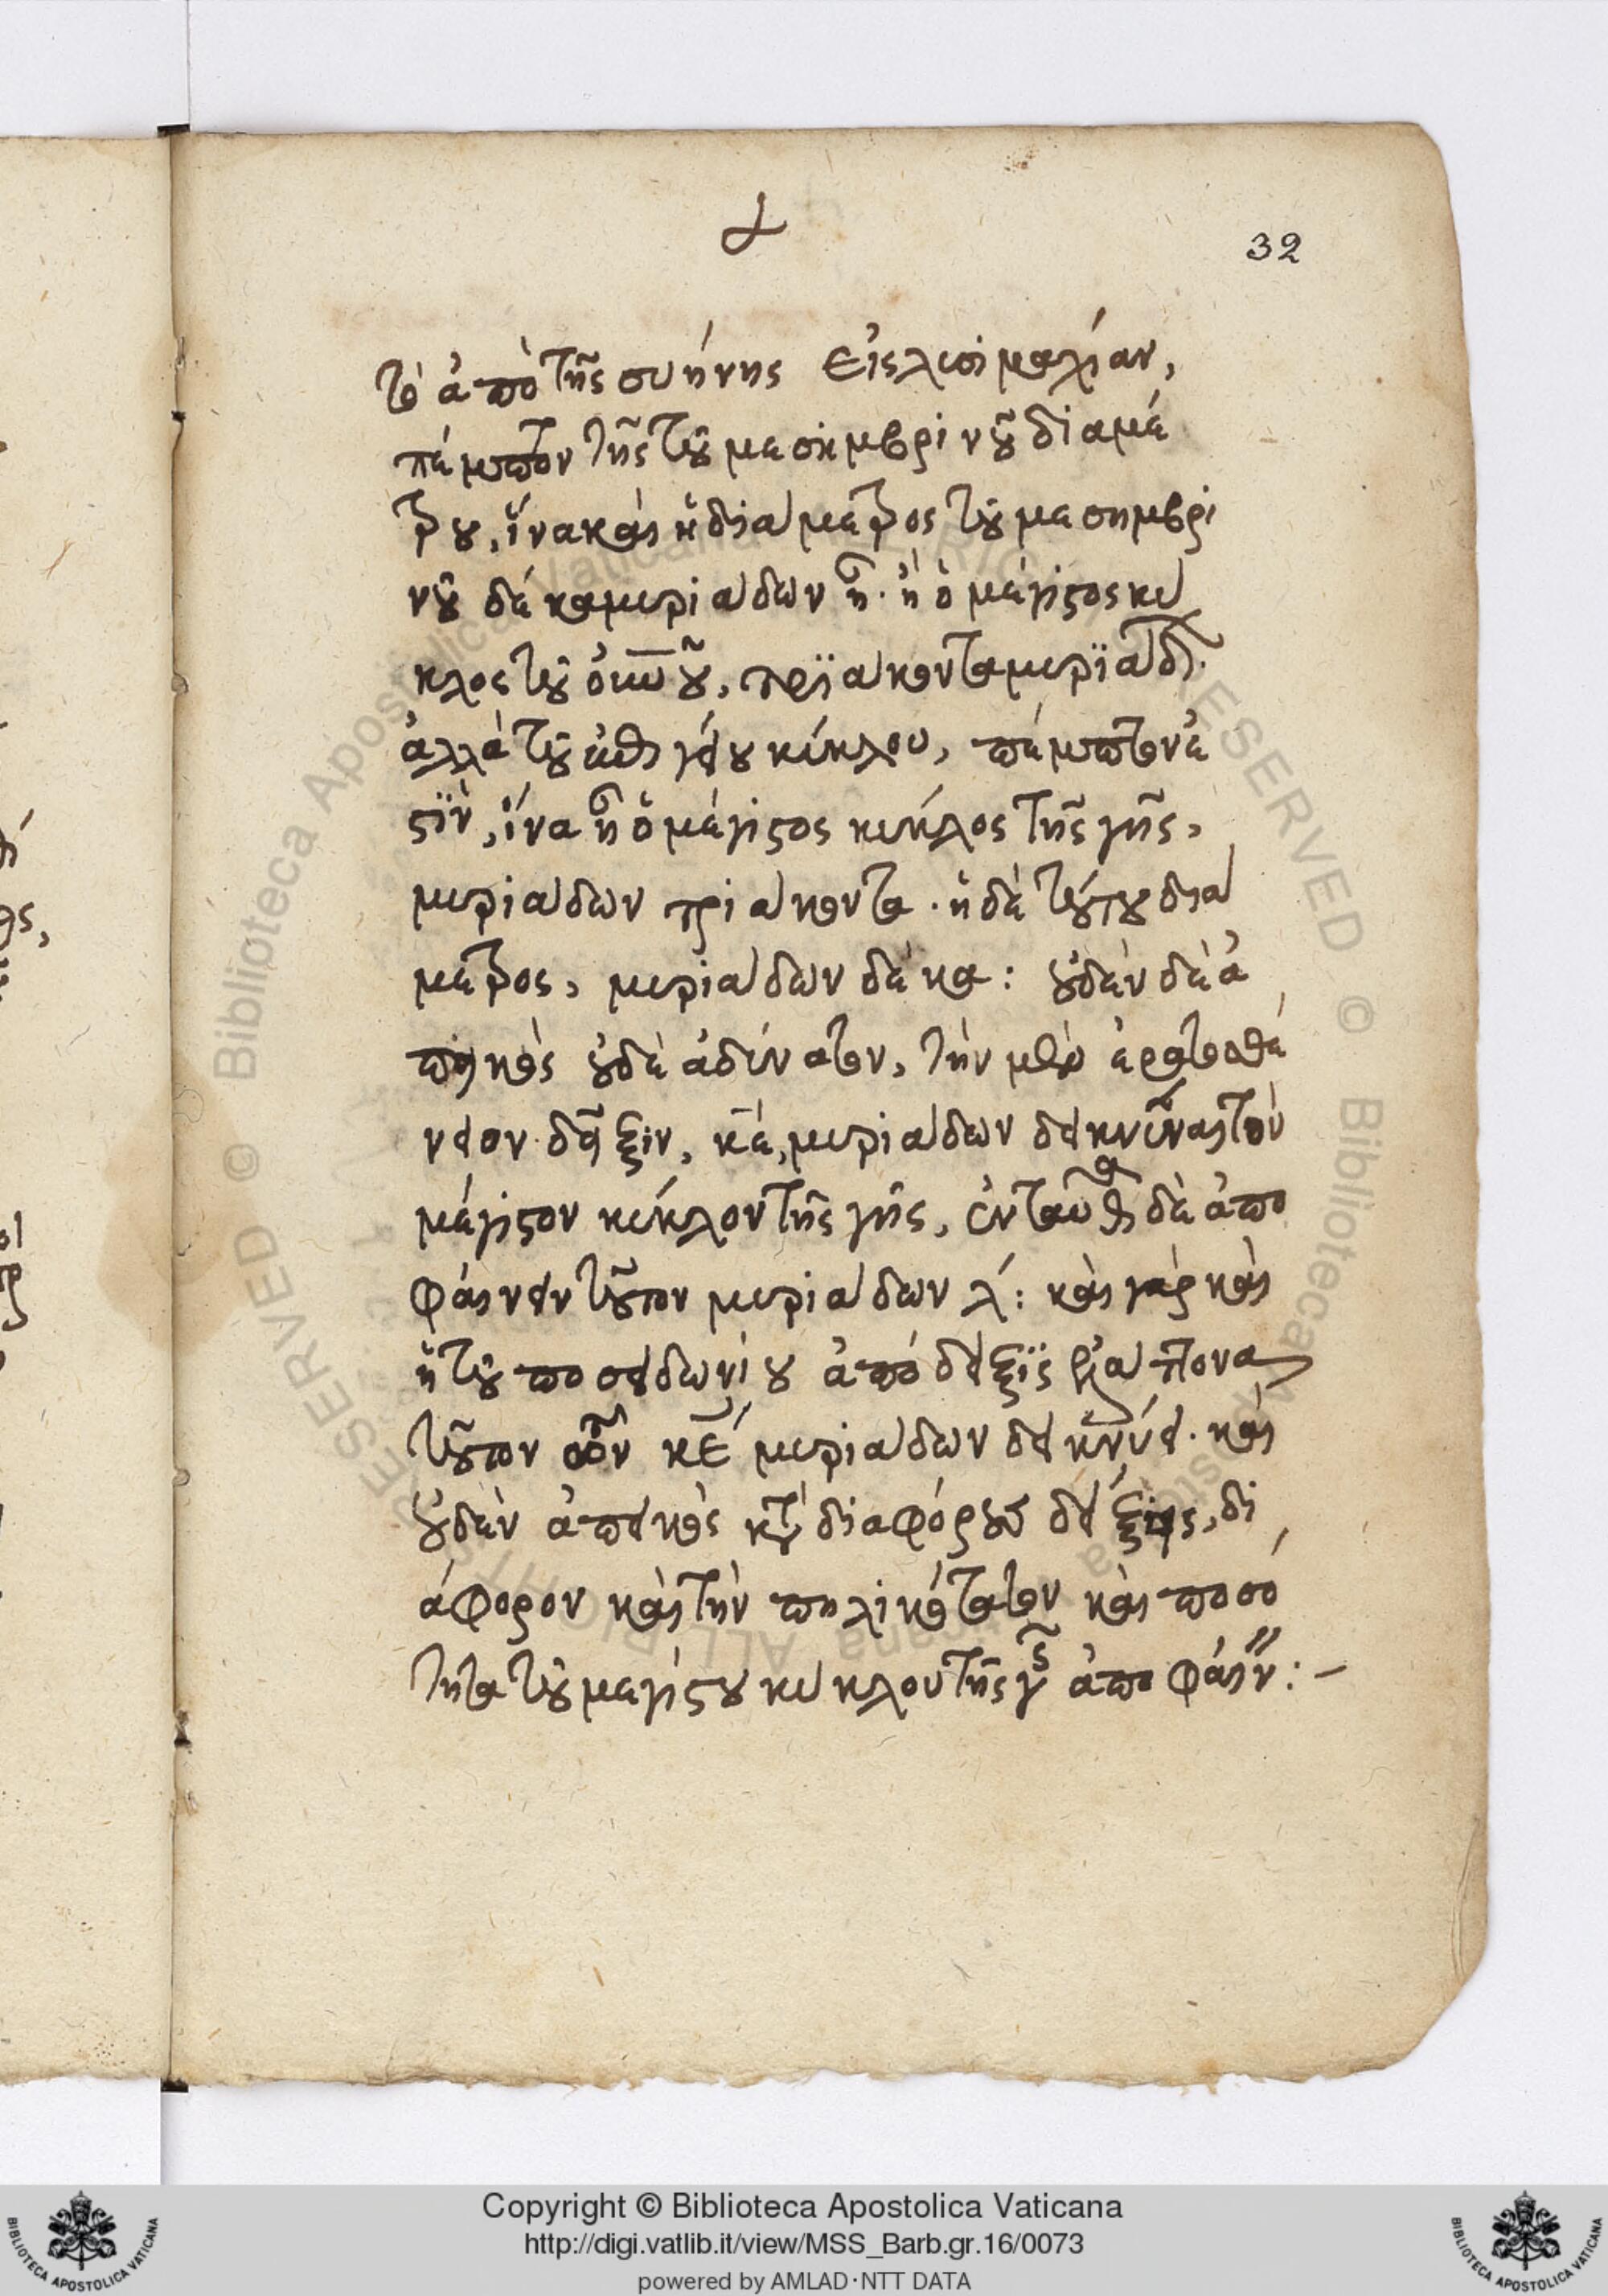 α
32
τὸ ἀπὸ τῆς συήνης εἰς λυσιμαχίαν,
πέμπτον τῆς τοῦ μεσημβρινοῦ διαμέ
τρου, ἵνα καὶ ἡ διάμετρος τοῦ μεσημβρι
νοῦ δέκα μυριάδων ἦ. ἢ ὁ μέγιστος κύ
κλος τοῦ, τριάκοντα μυριάδ
ἀλλὰ τοῦ κύκλου, πέμπτον ἐ
στιν, ἵνα ἦ ὁ μέγιστος κύκλος τῆς γῆς,
μυριάδων τριάκοντα. ἡ δὲ τούτου διά
μετρος, μυριάδων δέκα: οὐδὲν δὲ ἀ
πεικὸς οὐδὲ ἀδύνατον, τὴν μὲν ἐρατοσθέ
νειον δεῖξιν, κε, μυριάδων δεικνύναι τὸν
μέγιστον κύκλον τῆς γῆς, ἐνταῦθα δὲ ἀπο
φαίνειν τοῦτον μυριάδων λ: καὶ γὰρ καὶ
ἡ τοῦ ποσειδωνίου ἀπόδειξις
τοῦτον κε μυριάδων δεικνύει. καὶ
οὐδὲν ἀπεικὸς κατὰ διαφόρους δείξεις, δι
άφορον καὶ τὴν πηλικότητα καὶ ποσό
τητα τοῦ μεγίστου κύκλου τῆς γῆς ἀποφαίν:-
Copyright © Biblioteca Apostolica Vaticana
http://digi.vatlib.it/view/MSS_Barb.gr.16/0073
powered by AMLAD·NTT DATA